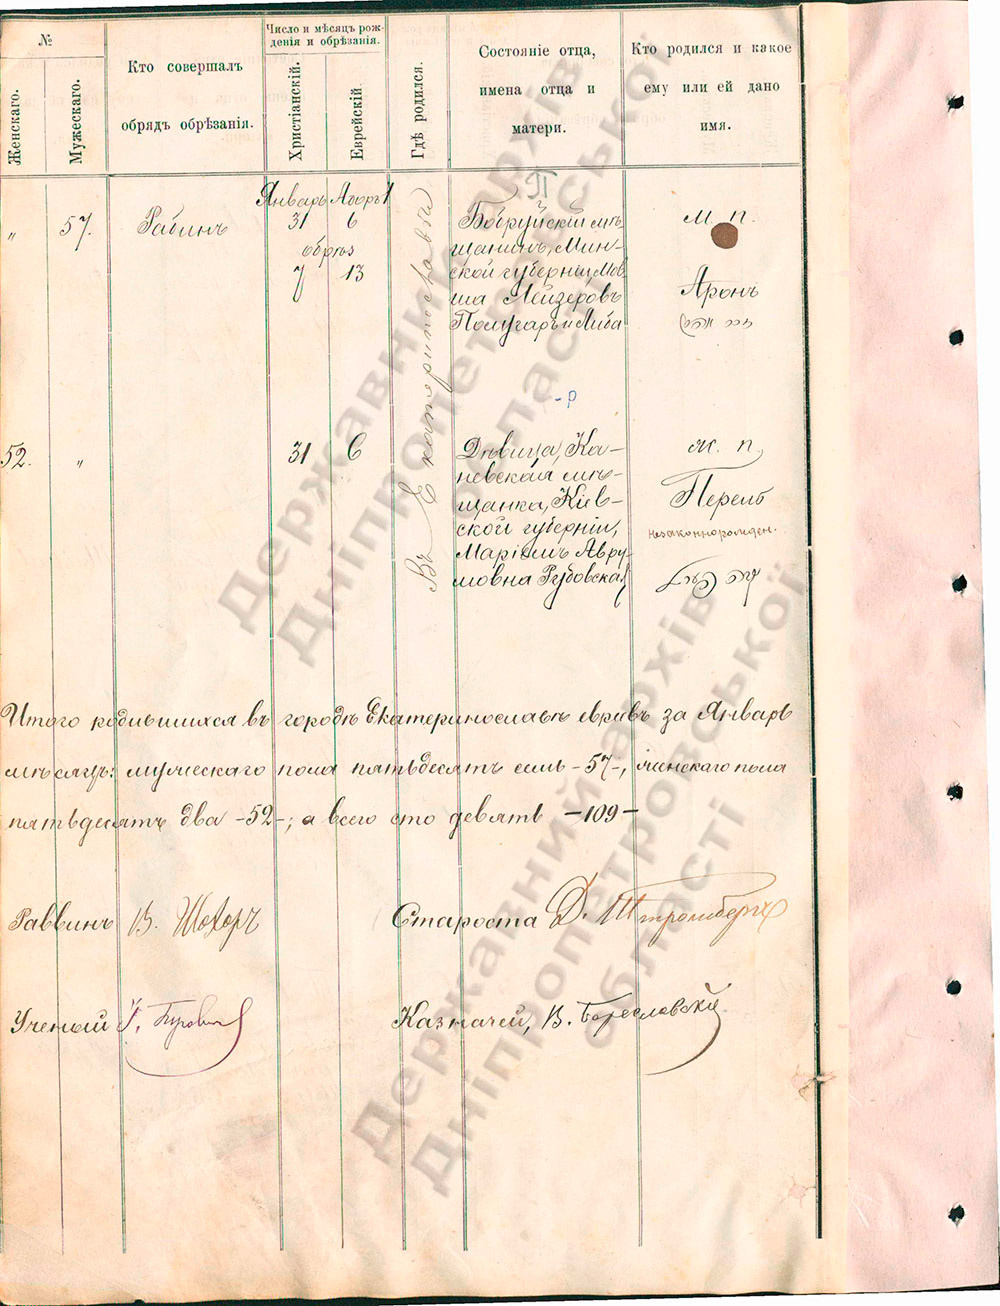 №
Женскаго.
Мужескаго.
Кто совершалъ
обрядъ обрѣзанія.
Число и мѣсяцъ рож-
денія и обрѣзанія.
Христіанскій.
Еврейскій.
Гдѣ родился.
Состояніе отца,
имена отца и
матери.
Кто родился и какое
ему или ей дано
имя.
"
57.
Рабинъ
Январь
31 6
обрѣз
7 13
Въ Екатеринославѣ
П
Бобруйскій мѣ-
щанинъ, Мин-
ской губерніи, Мов
ша Лейзеровъ
Полугаръ и Либа
м. п.
Аронъ
52.
"
31 6
- р
Дѣвица, Ка-
невская мѣ-
щанка, Кіев-
ской губерніи,
Маріямъ Авру-
мовна Рубовская
ж. п.
Перель
незаконнорожден.
Итого родившихся въ городѣ Екатеринославѣ евреевъ за Январь
мѣсяцъ: мужескаго пола пятьдесятъ семь -57-, женскаго пола
пятьдесятъ два -52-; а всего сто девять -109-
Раввинъ В. Шохоръ
Староста Д. Штромбергъ
Ученый
Казначей, В.
Державний архів
Дніпропетровської
області
Державний архів
Дніпропетровської
області